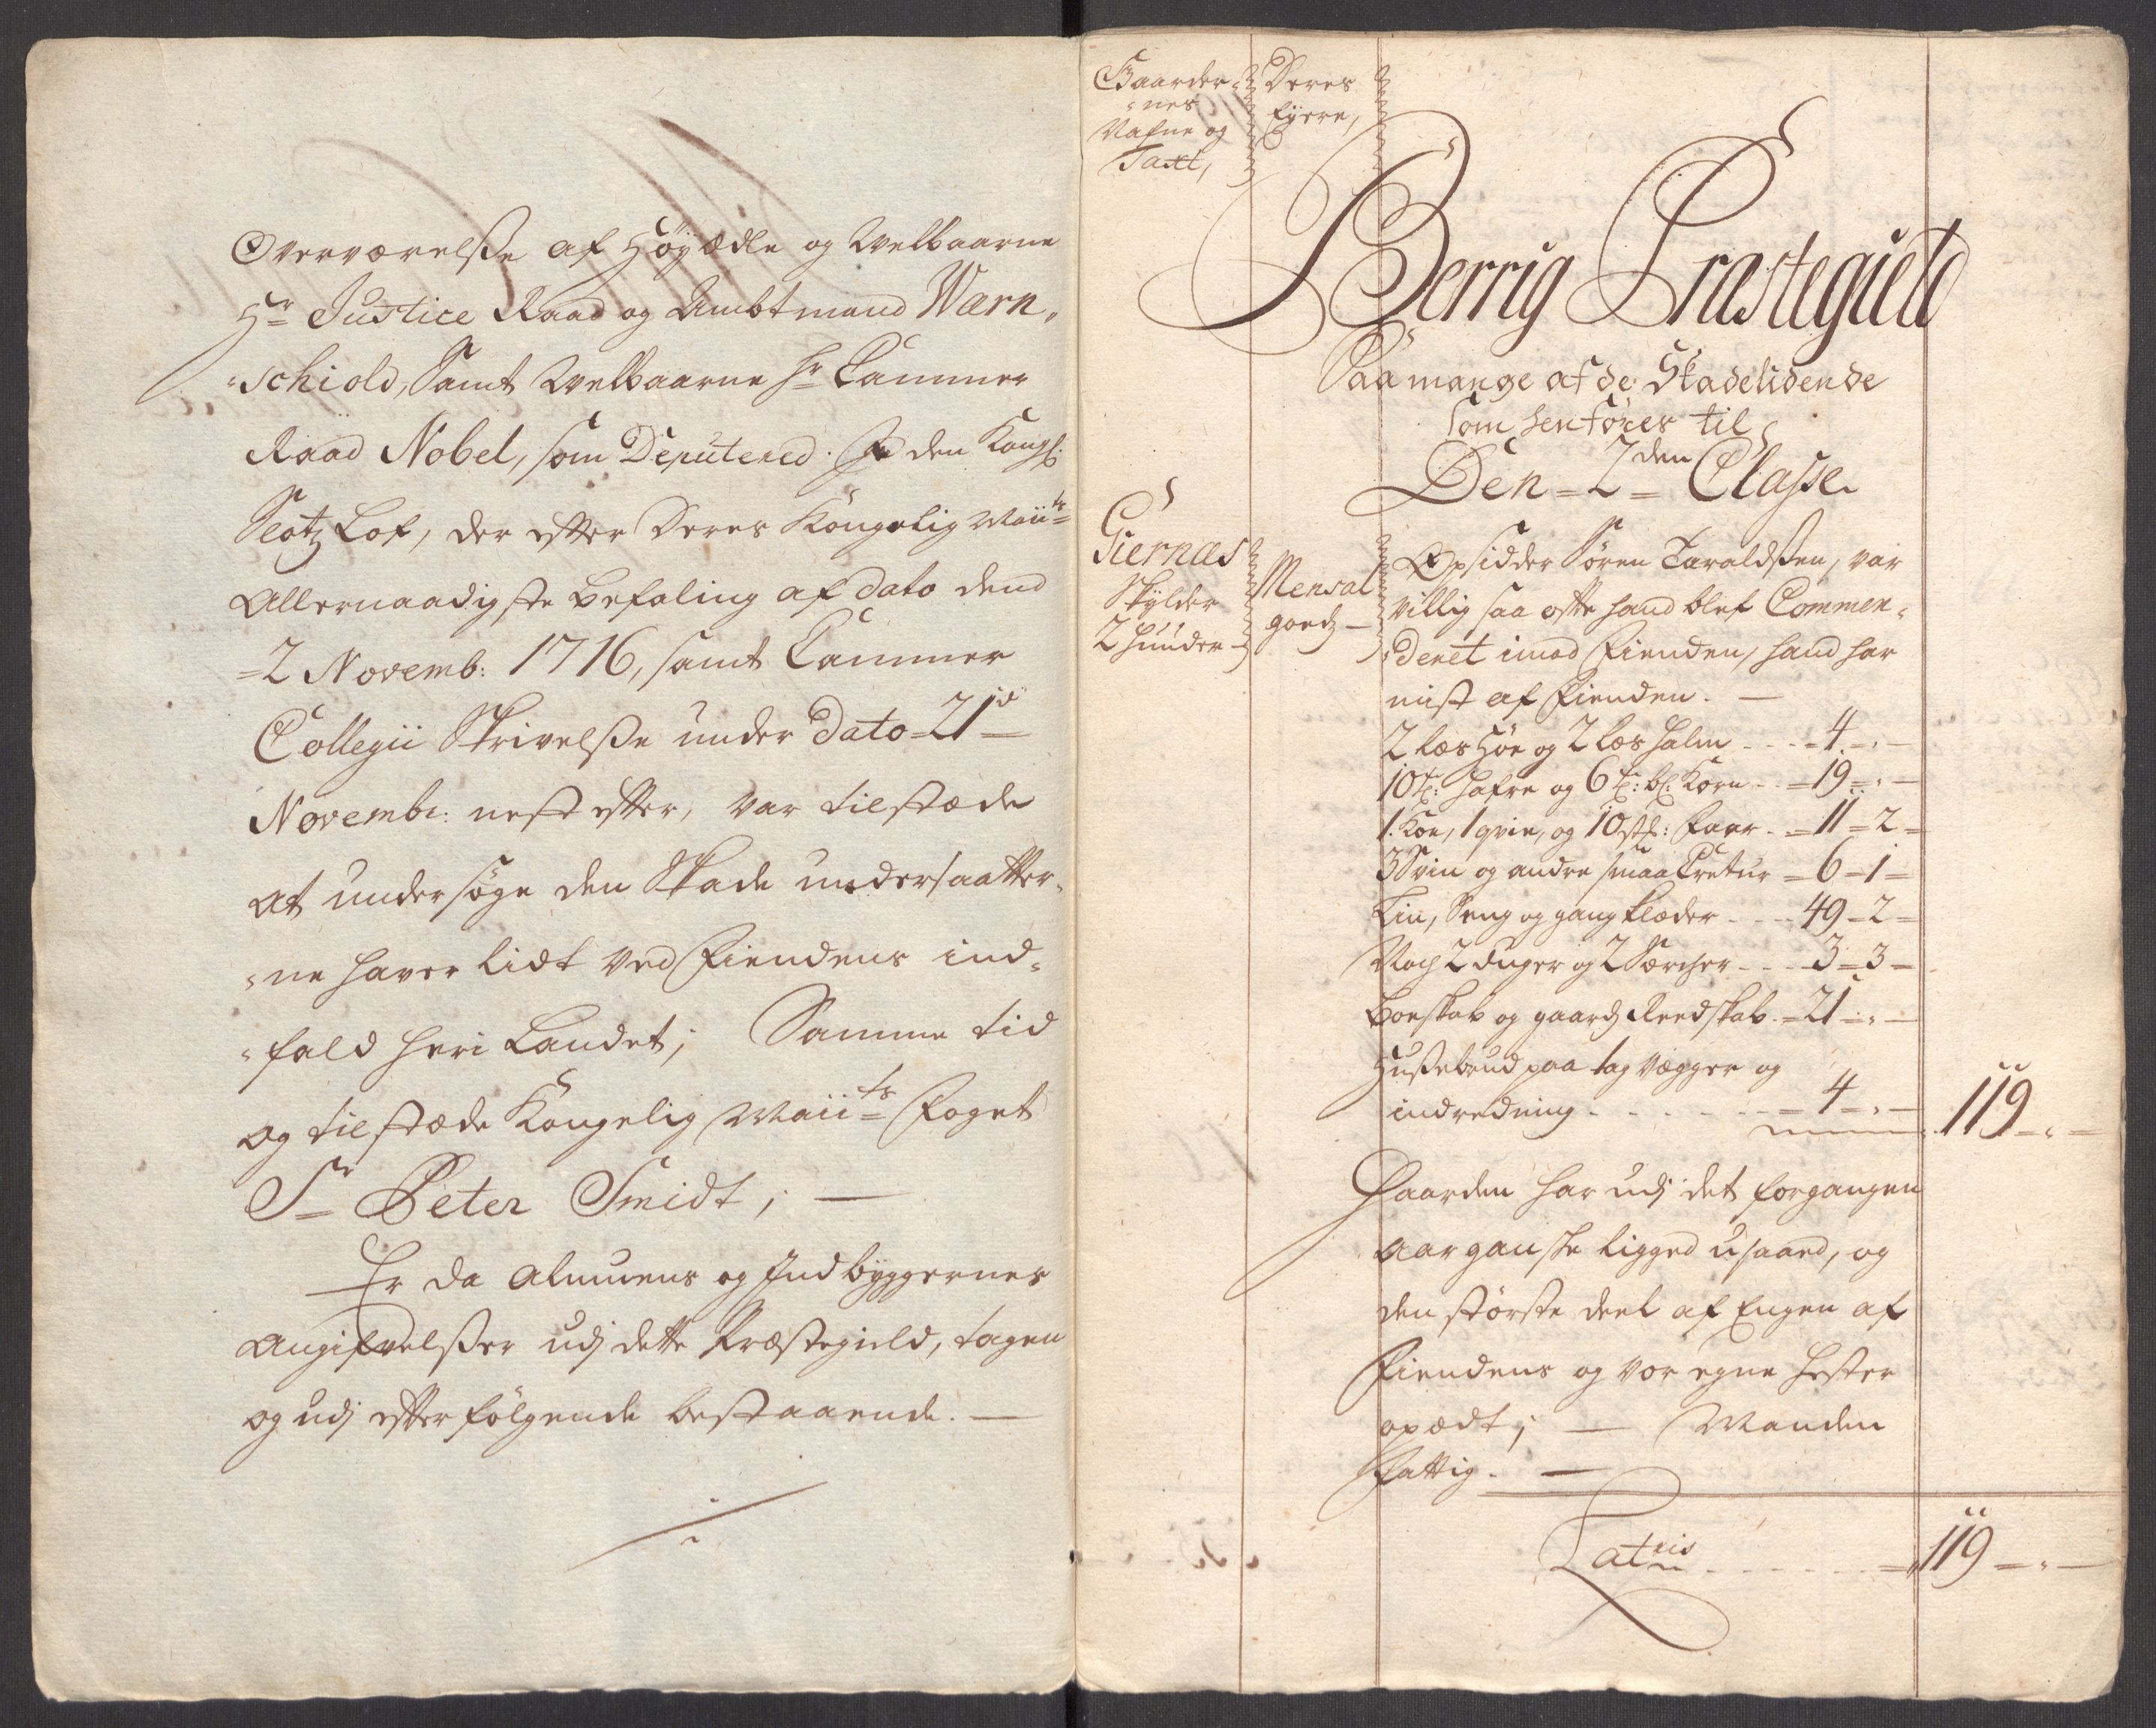 Overværelse af Høyædle og Welbaarne
Hr Justice Raad og Ambtmand Wærn„
„schiold, Samt Welbaarne Hr Cammer
Raad Nobel, som Deputered i den Kongl:
Slotz Lof, der efter Deres Kongelig Maiits
Allernaadigste befaling af dato dend
=2 Novemb: 1716, samt Cammer
Collegii Skrivelsse under Dato 21d
Novembr: nest efter, var tilstæde
at undersøge den Skade undersaatter„
„ne haver lidt ved Fiendens ind„
„fald heri Landet; Samme tid
og tilstæde Kongelig Maiits Foget
Sr Peter Smidt; —
Er da Almuens og Indbyggernes
Angifvelsser udj dette Præstegield, tagen
og udj efterfølgende bestaaende. —
Gaarder„
„nes
Nafne og
Taxt,
Deres
Eyere,
Berrig Præstegield
Saa mange af de Skadelidende
som henføres til
Den = 2den Classe
Giernæs
Skylder
2 Huuder
Mensal
goedz —
Opsidder Søren Taraldssen, var
villig saa ofte hand blef Commen„
„deret imod Fienden, hand har
mist af Fienden. —
2 læs Høe og 2 Læs halm - - - 4 - „ -
10 t: hafre og 6 t: bl: Korn - - 19 - „ -
1. Koe, 1 qvie, og 10 stk: Faar - 11 - 2 -
3 Svin og andre smaa Cretur - 6 - 1 -
Lin, Seng og gang Klæder - - - 49 - 2 -
Noch 2 duger og 2 Særcher - - - 3 - 3 -
Boeskab og gaardz Reedskab - 21 - „ -
Hussebrud paa tag vægger og
indredning - - - - - - - 4 - „ - 119 - „ -
Gaarden har udj det forgangen
Aar ganske ligged usaaed, og
den største deel af Engen af
Fiendens og vor egne hester
opædt; — Manden
Fattig. —
Lateris - - - - - - - 119 - „ -